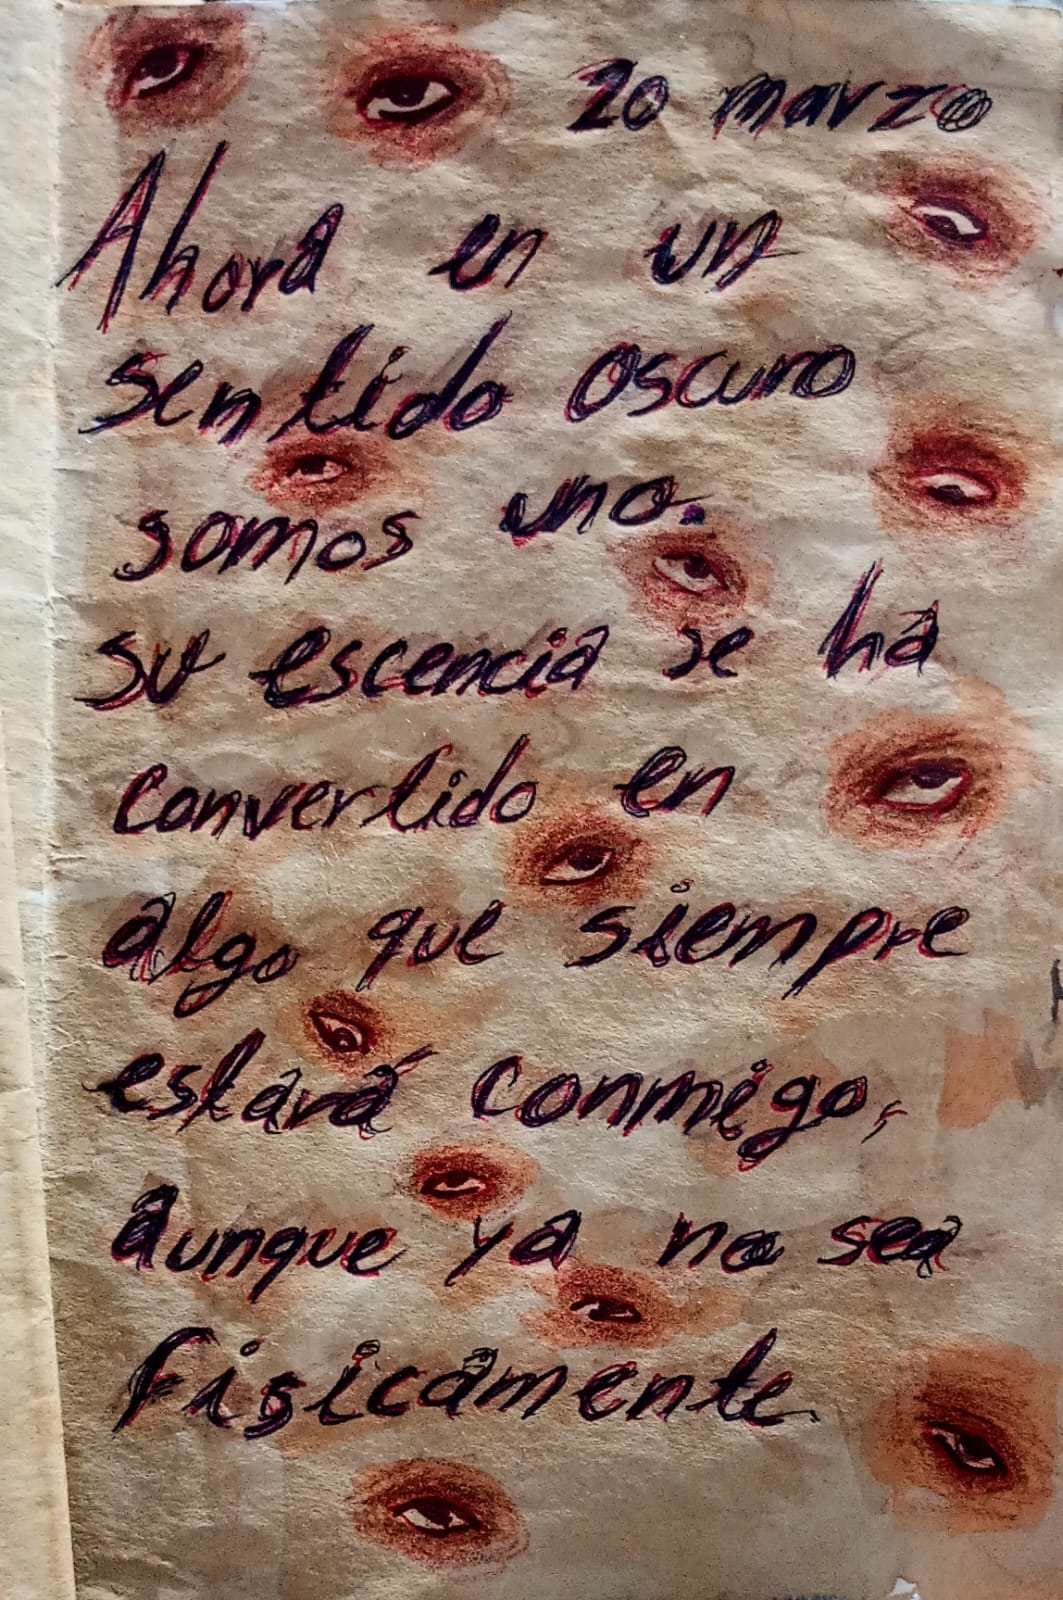 20 marzo
Ahora en un
sentido oscuro
somos uno.
su escencia se ha
convertido en
algo que siempre
estará conmigo,
aunque ya no sea
fisicamente